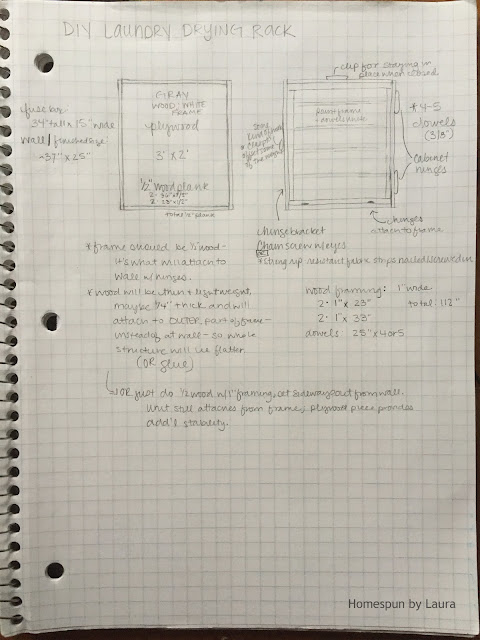 DIY LAUNDRY DRYING RACK
clip for staying in
place when closed
fuse box
34" tall x 15" wide
wall / finished size
~37" x 25"
GRAY
WOOD, WHITE
FRAME
plywood
3' x 2'
1/2" wood plank
total plank
paint frame
+ dowels white
* 4-5
dowels
(3/8")
cabinet
hinges
hinge bracket
Chain screw w/ eyes
OR
* strong rip resistant fabric strips nailed/screwed in
hinges
attach to frame
* frame should be 1/2" wood -
it's what will attach to
wall w/ hinges.
* wood will be thin + lightweight,
maybe 1/4" thick and will
attach to OUTER part of frame -
instead of at wall - so whole
structure will lie flatter.
(OR glue)
wood framing: 1" wide
2 - 1" x 23"
total: 112"
2 - 1" x 33"
dowels: 25" x 4 or 5
OR just do 1/2 wood w/ 1" framing, set sideways out from wall.
Unit still attaches from frame, plywood piece provides
add'l stability.
Homespun by Laura